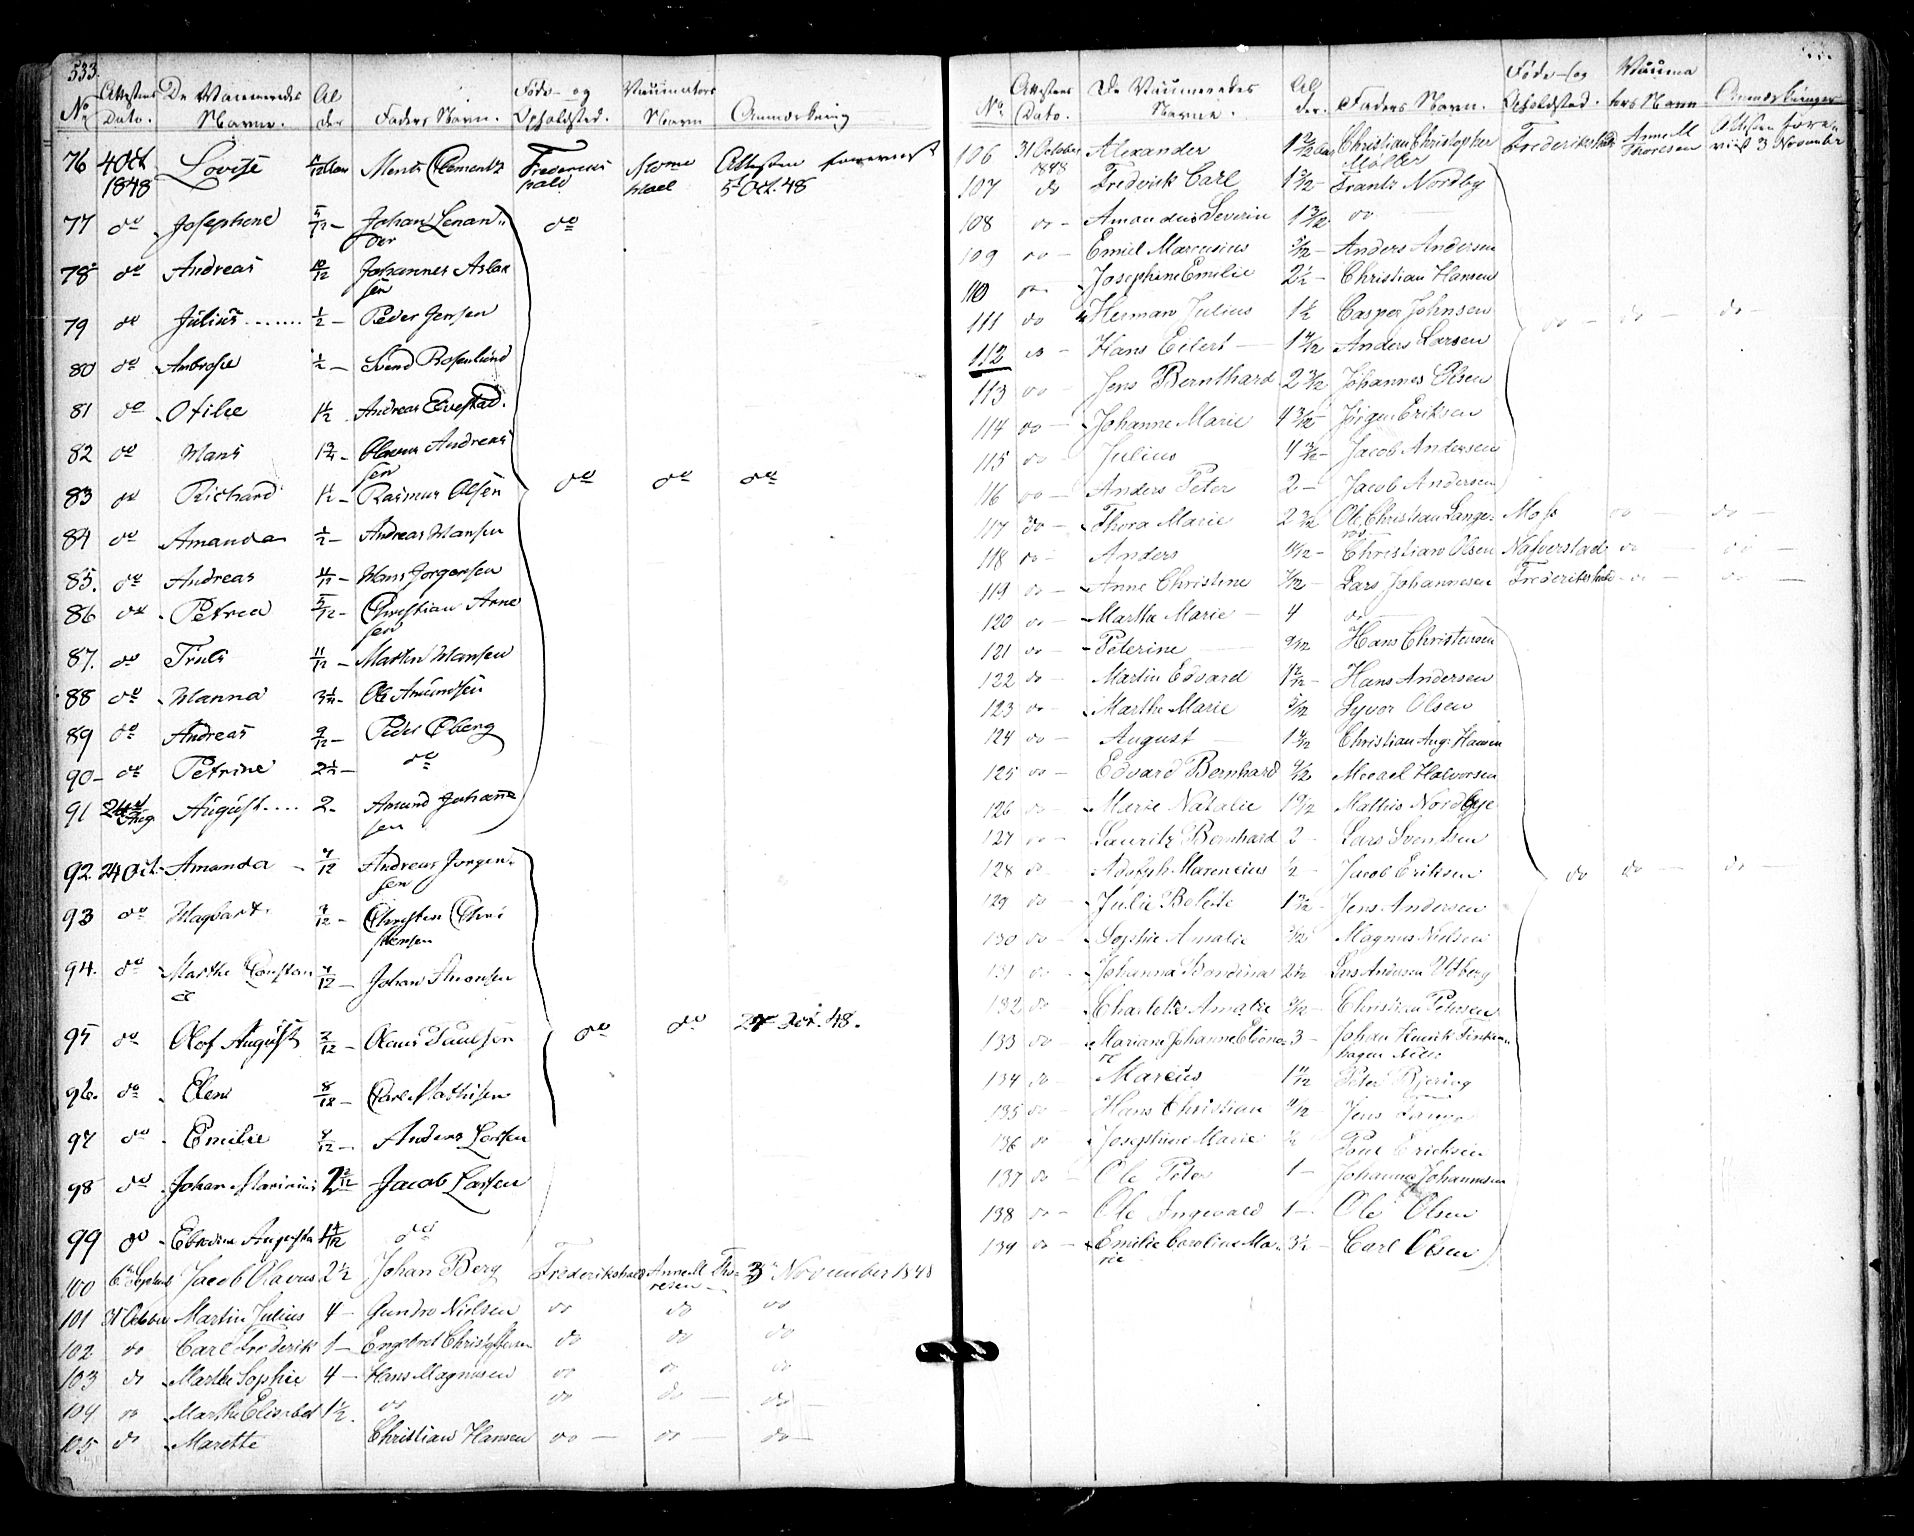 533.
No Attestens Dato. De Vaccineredes Navne. Alder Faders Navn. Føde- og Opholdsted. Vaccinators Navn Anmærkning
76 4 Oct 1848 Lovise /12 Clementz Fredericshald Attesten foreviist 5t Oct. 48
77 do Josephine 5/12 – Johan Lenander do
78 do Andreas 10/12 Johannes Aslaksen
79 do Julius 1/2 – Peder Jensen
80 do Ambrose 1/2 – Svend Rosenlund
81 do Otilie 1 1/2 Andreas
82 do Hans 1 Andreassen
83 do Richard 1 1/2 – Rasmus Olsen do do do
84 do Amanda 1/2 – Andreas Hansen
85. do Andreas 11/12 – Hans Jørgensen
86 do Petrea 5/12 – Christian Arnesen
87. do Truls 11/12 – Morten Hansen
88 do Hanna 3 – Ole Amundsen
89 do Andreas 9/12 – Peder Oberg
90 – do Petrine 2 1/2 – do
91 August 2 – Amund Johannesen
92. 24 Oct. Amanda – 7/12 Andreas Jørgensen
93 do Hagbart 9/12 – Christen Christensen
94. do Marthe Constance 7/12 – Johan Simonsen
95 do Olof August 2/12 – Olaus Paulsen do do 27 Oct. 48.
96. do Elen 8/12 – Carl Mathisen
97 do Emilie 8/12 – Anders Larsen
98 do Johan Marinius 2 Jacob Larsen
99 do Augusta 1 4/12 do
100 6 Septemb Jacob Olavus 2 1/2 Johan Berg Frederikshald Anne M Thoresen – 3 November 1848
101 31 October Martin Julius 4 – Gundro Nielsen do do do
102 do Carl Frederik 1 – Engebret Christophersen do do do
103 do Marthe Sophie 4 – Hans Magnusen do do do
104 do Marthe Elisabet 1 1/2 do do do – do –
105 do Marette Christian Hansen do – do – do –
No Attestens Dato. De Vaccineredes Navne. Alder. Faders Navn. Føde- og Opholdsted. Vaccinators Navn Anmærkninger
106 31 October 1848 Alexander 1 Christian Christopher Møller Frederikshald Anne M Thoresen Attesten foreviist 3 Novembr
107 do Fredrik Carl 1 5/12 – Frants Nordby
108 do – Amandus Severin 1 3/12 do –
109 do – Emiel Marcusius 5/12 – Anders Andersen
110 do – Josephine Emilie 2 1/2 – Christian Hansen
111 do Herman Julius 1 1/2 Casper Johnsen do – do – do –
112 do – Hans Eilert – 1 4/12 Anders Larsen
113 do – Jens Bernthard 2 3/12 Johannes Olsen
114 do – Johanne Marie 4 3/12 – Jørgen Eriksen
115 do – Julius 4 – Jacob Andersen
116 do – Anders Peter 2 – Jacob Andersen
117 do – Thora Marie 2 3/12 Ole Christian Moss do – do –
118 do – Anders /12 – Christian Olsen Naverstad do – do –
119 do – Anne Christine /12 – Lars Johannesen Frederikshald – do – do –
120 do – Martha Marie – 4 do –
121 do – Peterine 9/12 Hans Christensen
122 do – Martin Edvard 1 – Hans Andersen
123 do – Marthe Marie 5/12 Syver Olsen
124 do – August – 1 Christian Aug. Hansen
125 do – Edvard Bernhard /12 Micael Halvorsen
126 do – Marie Natalie 1 9/12 Mathis Nordbye
127 do – Lauritz Bernhard 2 – Lars Svendsen
128 do – Adolph Marencius 1/2 – Jacob Eriksen do do – do –
129 do – Julie Bolette 1 – Jens Andersen
130 do – Sophie Amalie /12 Magnus Nielsen
131 do – Johanna Bardina 2 1/2 Lars Andersen
132 do – Charlotte Amalie /12 – Christian Petersen
133 do – Mariane Johanne Elionore 3 – Johan Henrik
134 do – Marcus 1 11/12 – Peter Bjering
135 do – Hans Christian /12 – Jens
136 do – Josephine Marie 1/2 – Poul Erichsen
137 do – Ole Peter 1 – Johannes Johannesen
138 do – Ole Ingevald 1 – Ole Olsen
139 do – Emilie Caroline Marie 3 1/2 – Carl Olsen